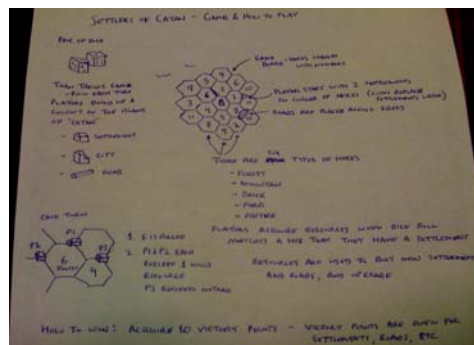 SETTLERS OF CATAN - GAME & HOW TO PLAY
PAIR OF DICE
TURN TAKING GAME
- ROLL EACH TURN
PLAYERS BUILD UP A
ON THE ISLAND
OF "CATAN"
- SETTLEMENT
- CITY
- ROAD
GAME
BOARD - 
WITH NUMBERS
PLAYERS START WITH 2 SETTLEMENTS
ON CORNER OF HEXES (CITIES REPLACE
SETTLEMENTS LATER)
ROADS ARE PLACED ALONG EDGES
THERE ARE TYPES OF HEXES
- FOREST
- MOUNTAIN
- BRICK
- FIELD
- PASTURE
ONE TURN
P1
P2
P3
6
4
1. 6 IS ROLLED
2. P1 & P2 EACH
RECEIVE 1 WOOD
RESOURCE
P3 RECEIVES NOTHING
PLAYERS ACQUIRE RESOURCES WHEN DICE ROLL
MATCHES A HEX THAT THEY HAVE A SETTLEMENT
RESOURCES ARE USED TO BUY NEW SETTLEMENTS
AND ROADS, AND UPGRADE
HOW TO WIN: ACQUIRE 10 VICTORY POINTS - VICTORY POINTS ARE GIVEN FOR
SETTLEMENTS, ROADS, ETC